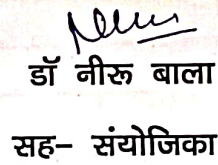 डॉ नीरू बाला
सह- संयोजिका